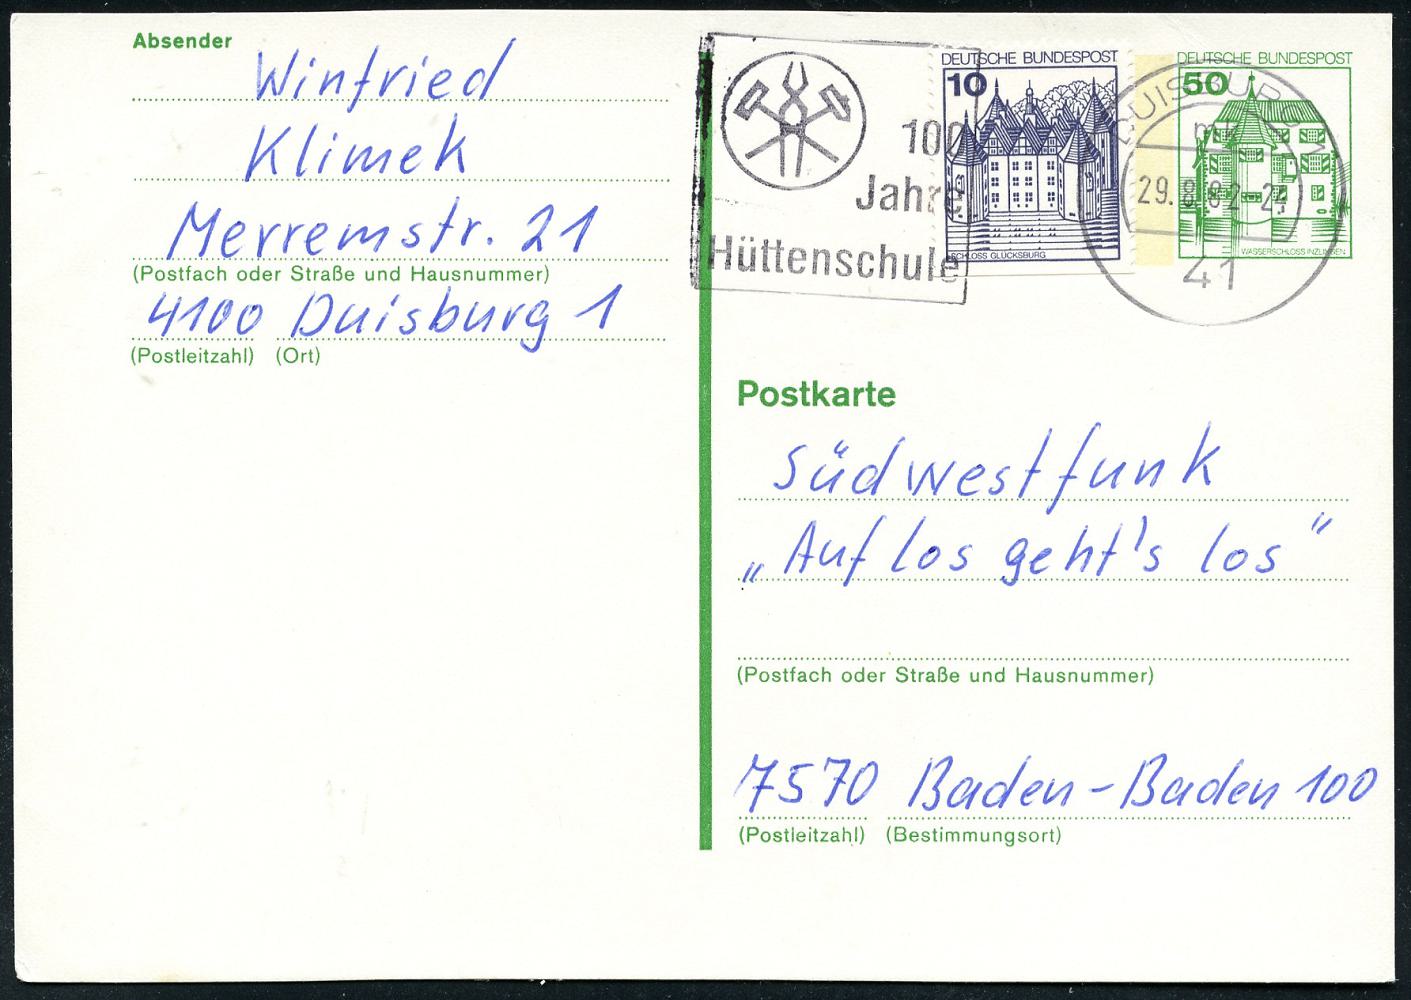 Absender
Winfried
Klimek
Merremstr. 21
(Postfach oder Straße und Hausnummer)
4100 Duisburg 1
(Postleitzahl) (Ort)
100
Jahre
Hüttenschule
DEUTSCHE BUNDESPOST
10
SCHLOSS GLÜCKSBURG
DEUTSCHE BUNDESPOST
50
WASSERSCHLOSS INZLINGEN
DUISBURG 1
29.8.82-24
41
Postkarte
Südwestfunk
„Auf los geht's los"
(Postfach oder Straße und Hausnummer)
7570 Baden-Baden 100
(Postleitzahl) (Bestimmungsort)